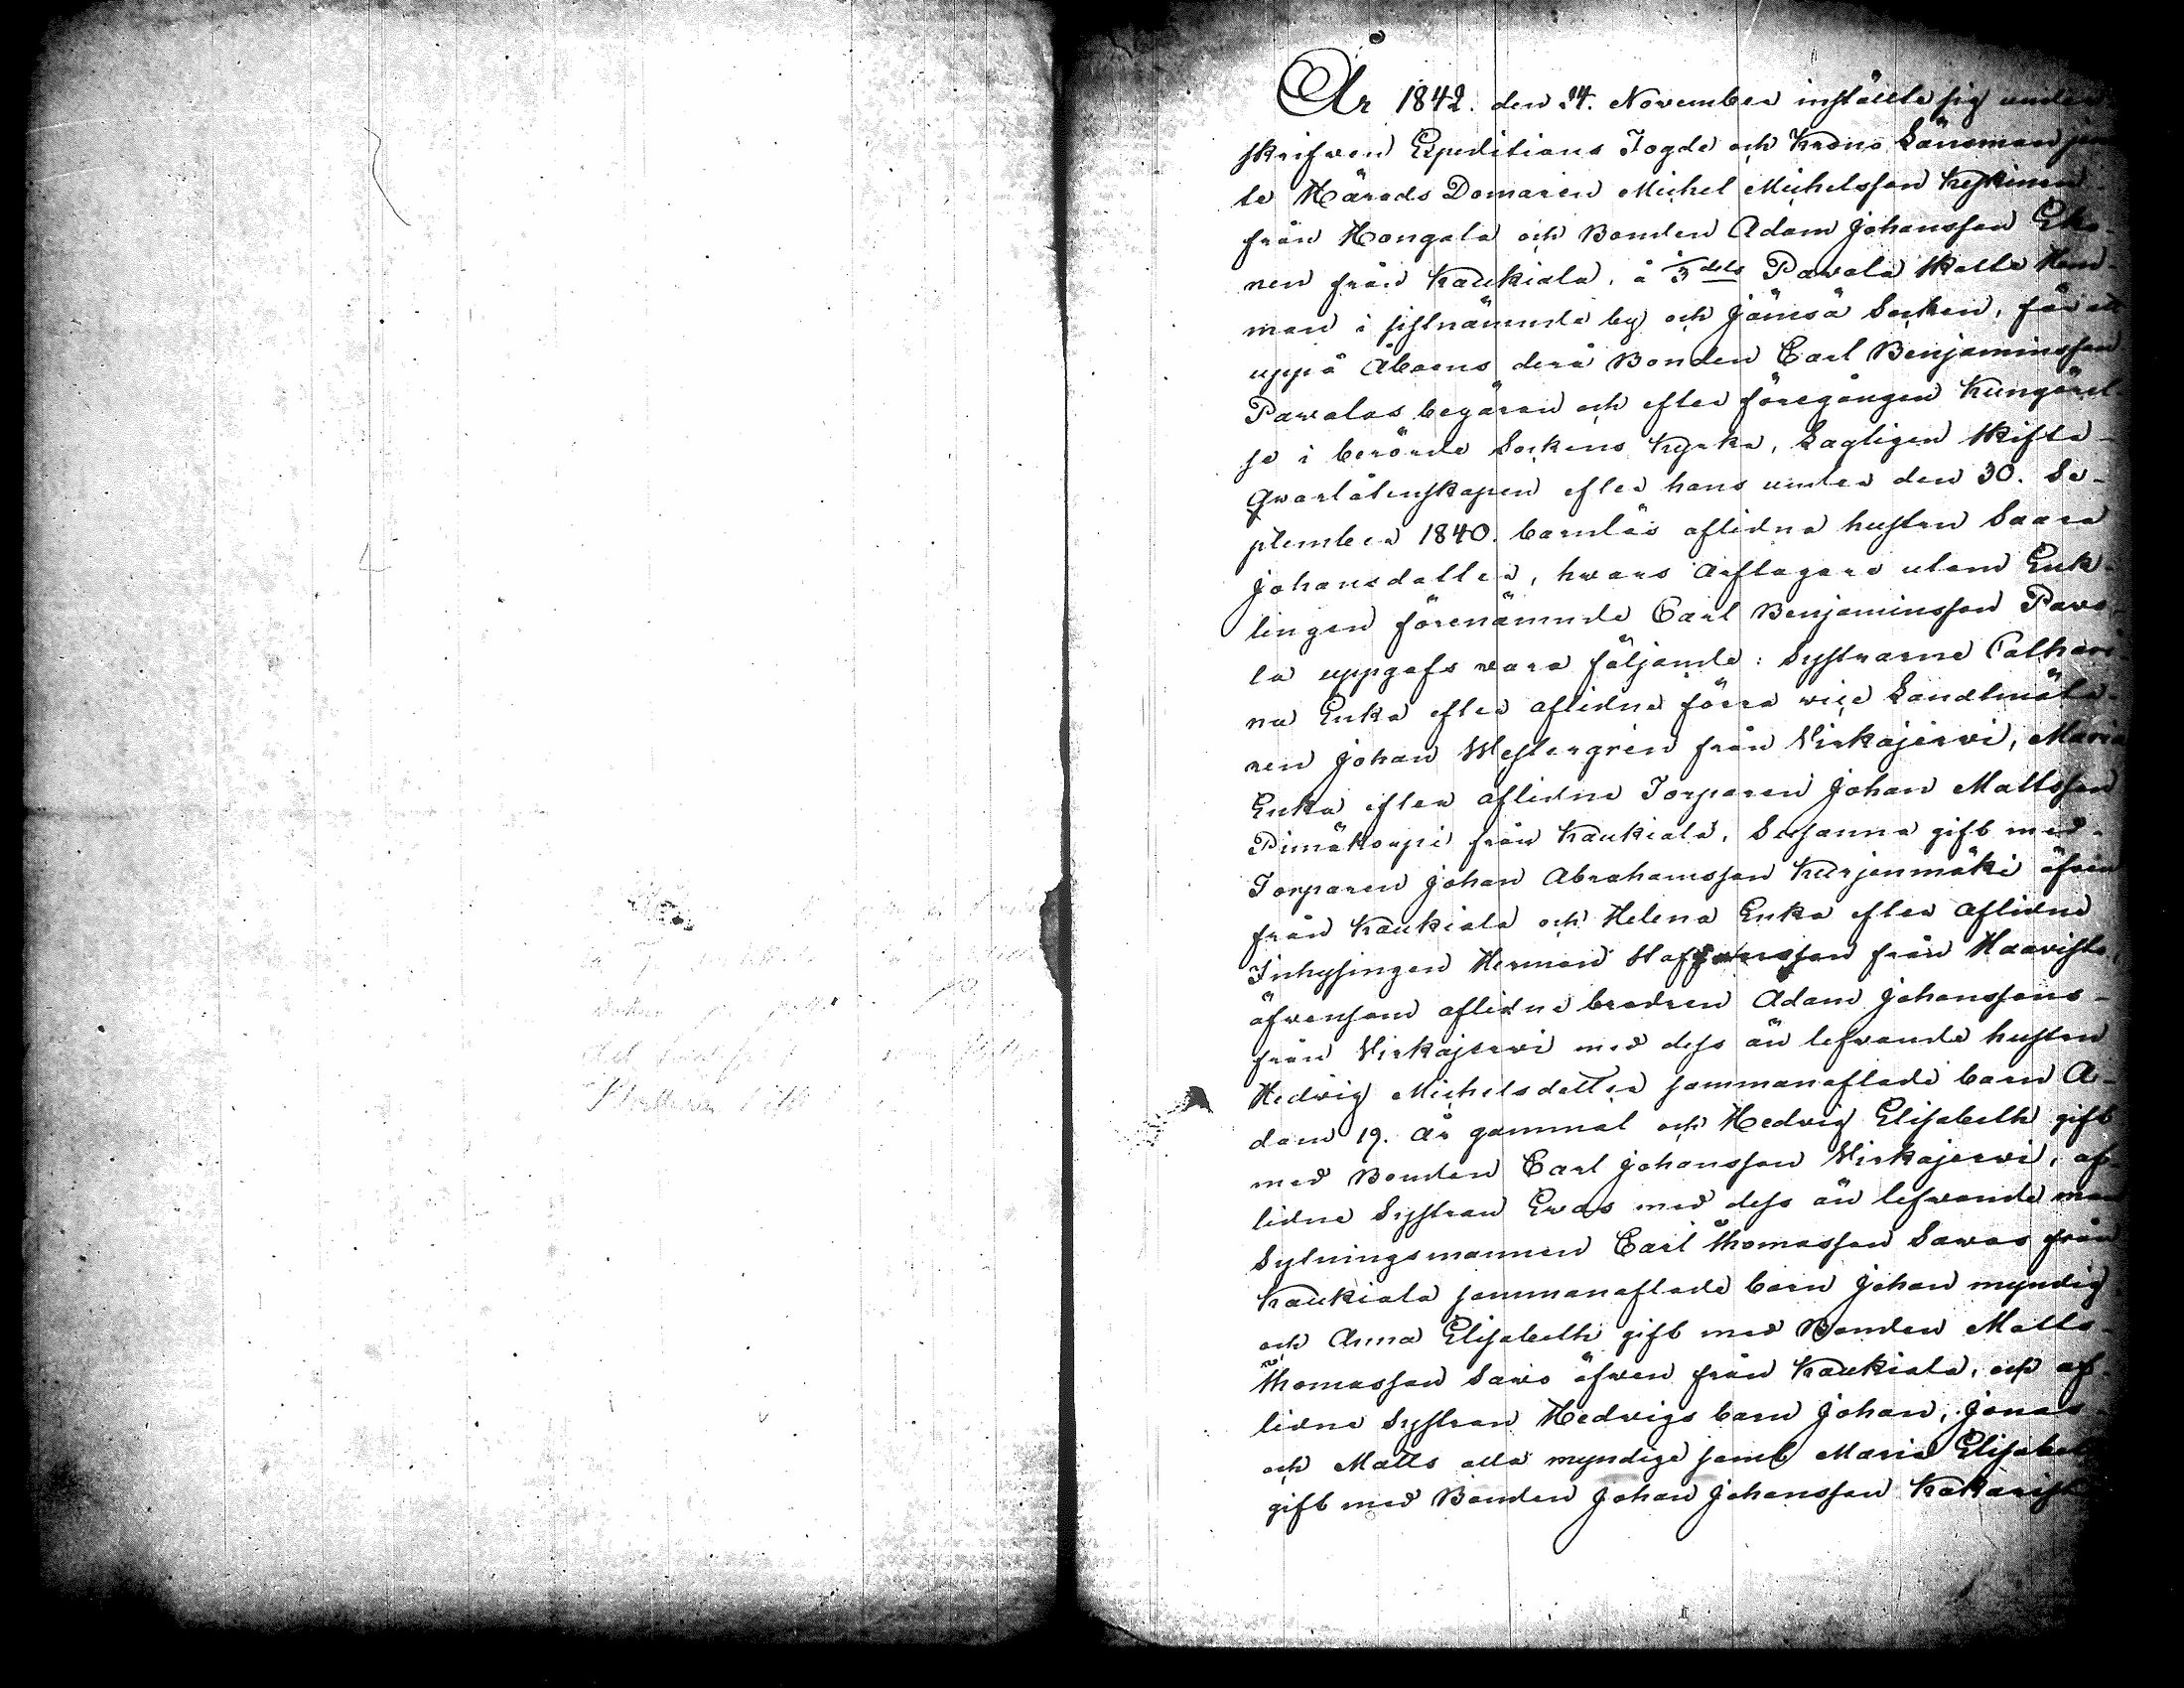 År 1842. den 24. November inställte sig under-
skrifven Expeditions Fogde och Krono Länsman jem-
te Härads Domaren Michel Michelsson Keskinen
från Hongala och Bonden Adam Johansson Eko-
nen från Kaukiala, å 1/3 dels Pavala Skatte Hem-
man i sistnämnde by och Jämsä Socken, för att
uppå Åboens derå Bonden Carl Benjaminsson
Pavalas begäran och efter föregången Kungörel-
se i berörde Sockens Kyrka, Lagligen skifta
Qvarlåtenskapen efter hans under den 30. Se-
ptember 1840. barnlös aflidna hustru Saara
Johansdotter, hvars Arftagare utom Enk-
lingen förenämnde Carl Benjaminsson Pava-
la uppgafs vara följande: Systrarne Cathari-
na Enka efter aflidne förra vice Landtmäta-
ren Johan Westergren från Virkajervi, Maria
Enka efter aflidne Torparen Johan Mattsson
Pimäkorpi från Kaukiala, Susanna gift med
Torparen Johan Abrahamsson Kurjenmäki äfven
från Kaukiala och Helena Enka efter aflidne
Inhysingen Herman Staffansson från Haavisto,
äfvensom aflidne brodren Adam Johanssons
från Virkajervi med dess än lefvande hustru
Hedvig Michelsdotter sammanaflade barn A-
dam 19. år gammal och Hedvig Elisabeth gift
med Bonden Carl Johansson Virkajervi, af-
lidne Systran Evas med dess än lefvande man
Sytningsmannen Carl Thomasson Savos från
Kaukiala sammanaflade barn Johan myndig
och Anna Elisabeth gift med Bonden Matts
Thomasson Savo äfven från Kaukiala, och af-
lidne Systran Hedvigs barn Johan, Jonas
och Matts alla myndige samt Maria Elisabeth
gift med Bonden Johan Johansson